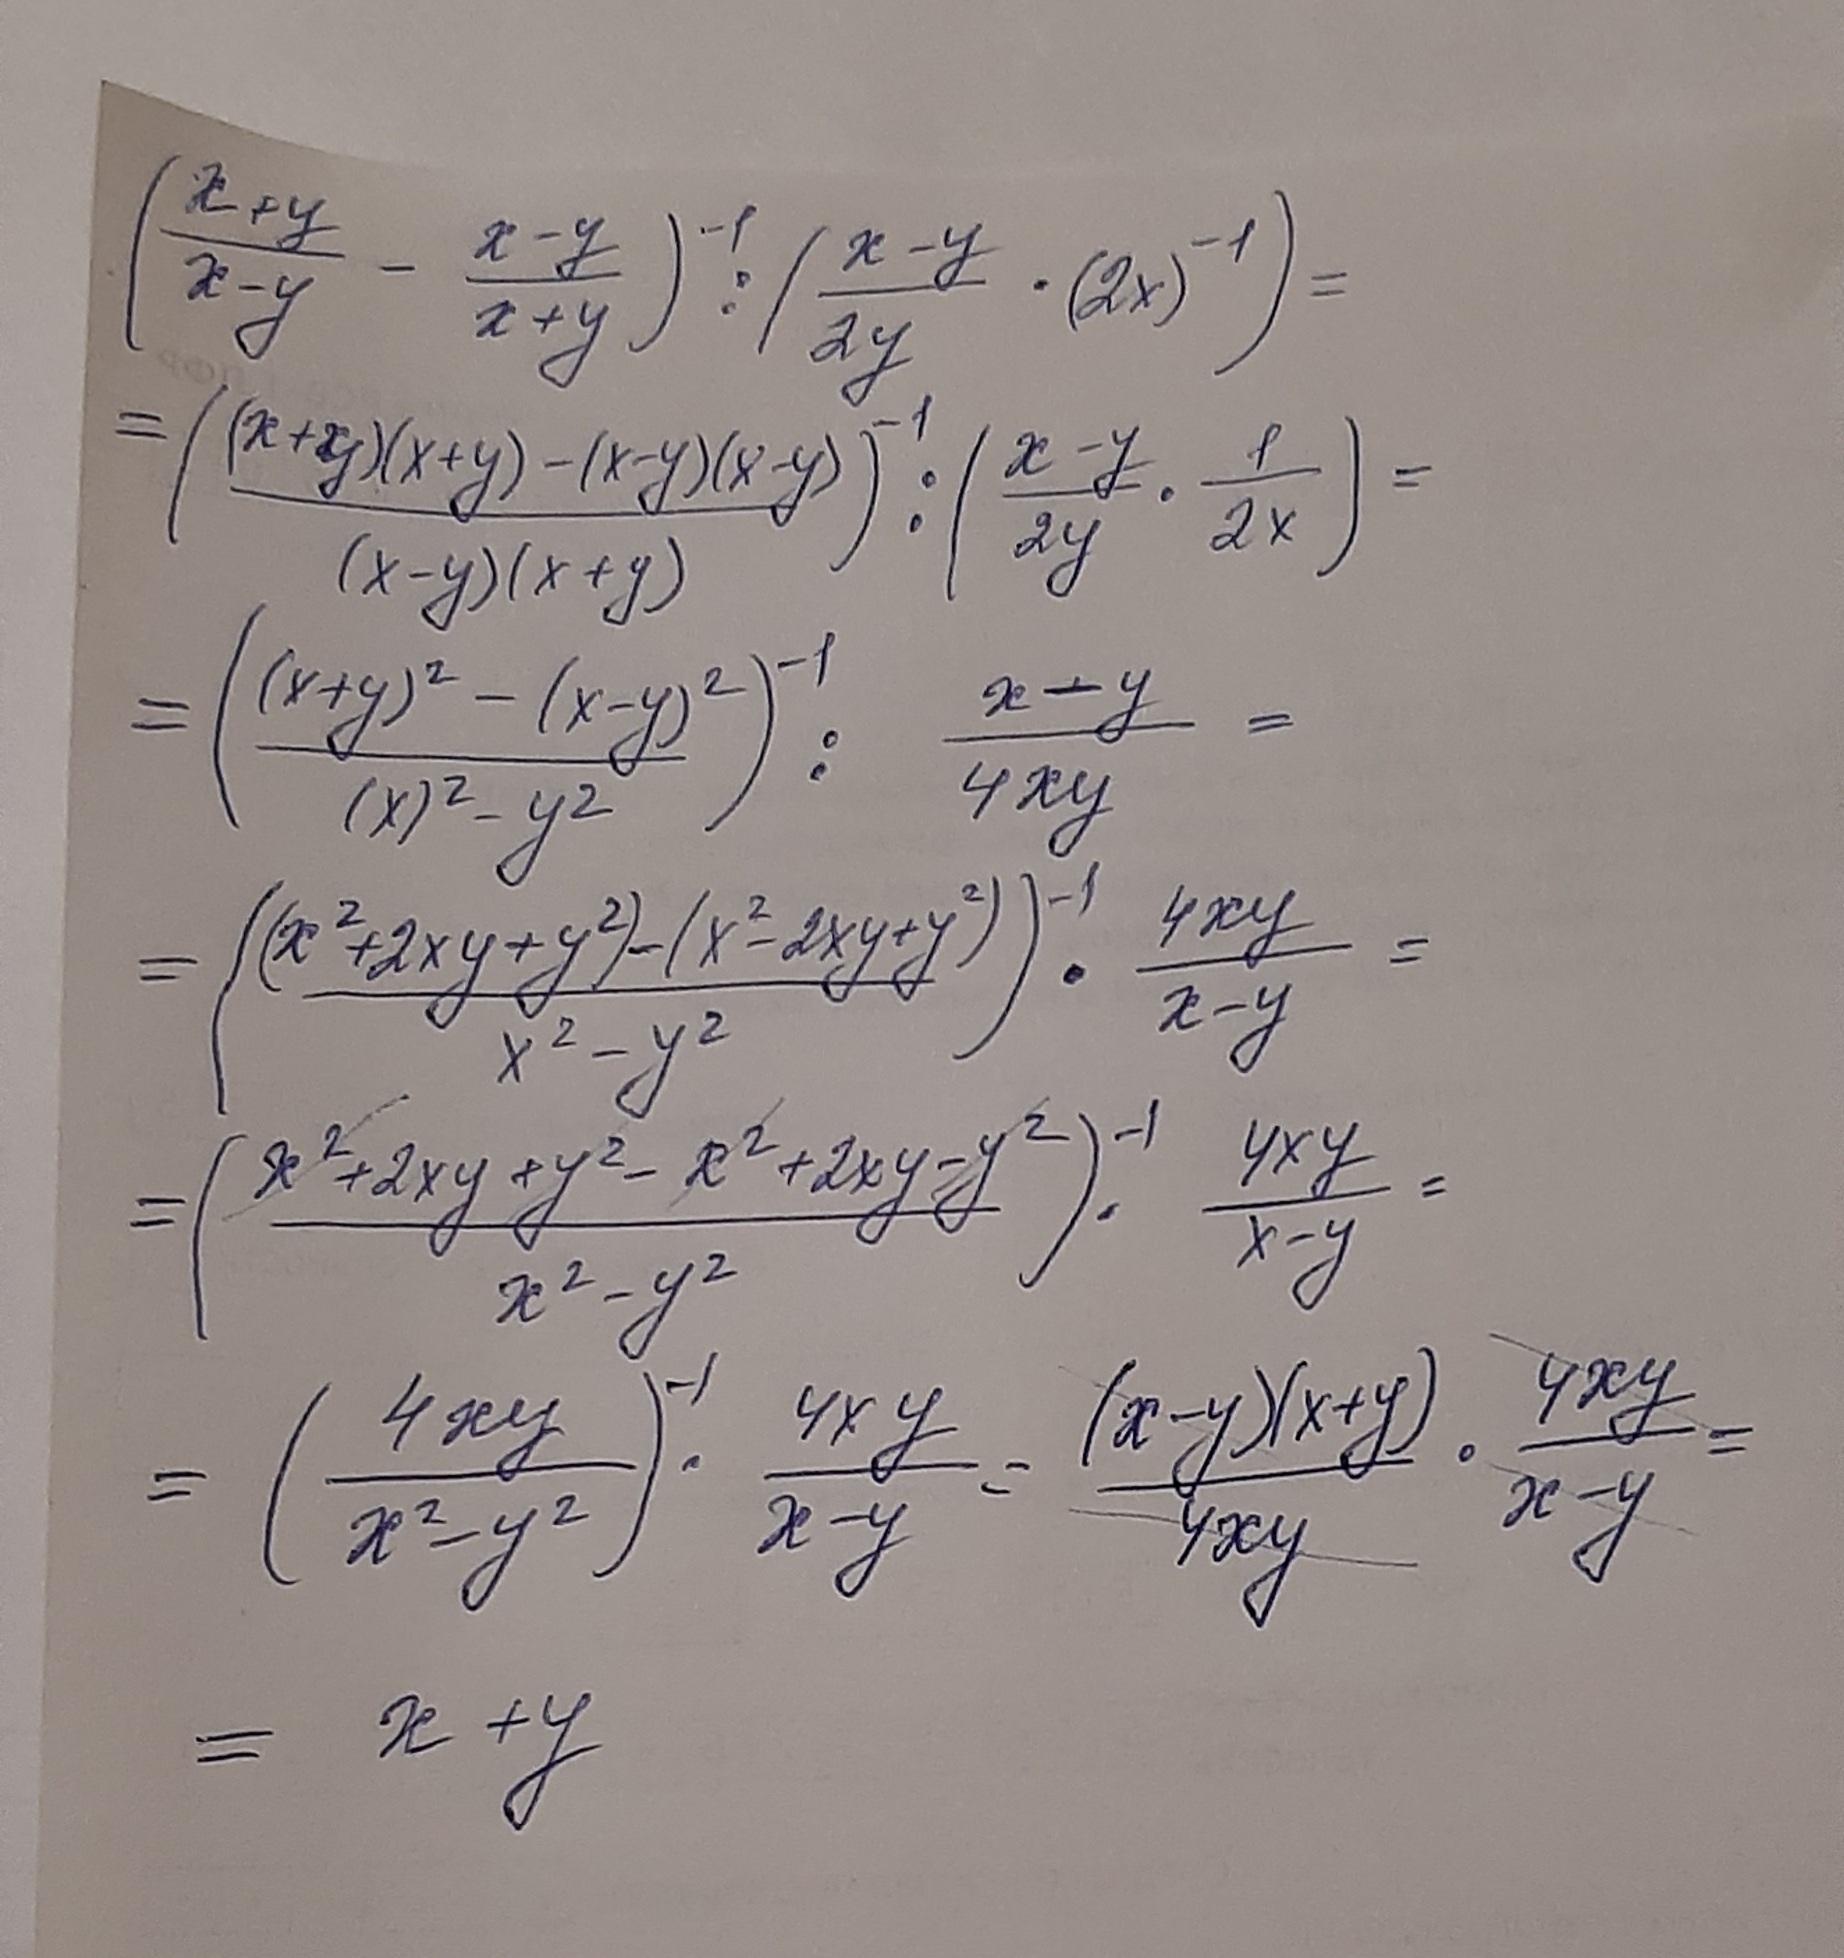 (\frac{x+y}{x-y} - \frac{x-y}{x+y})^{-1} : (\frac{x-y}{2y} \cdot (2x)^{-1}) =
= (\frac{(x+y)(x+y)-(x-y)(x-y)}{(x-y)(x+y)})^{-1} : (\frac{x-y}{2y} \cdot \frac{1}{2x}) =
= (\frac{(x+y)^2 - (x-y)^2}{(x)^2 - y^2})^{-1} : \frac{x-y}{4xy} =
= (\frac{(x^2+2xy+y^2)-(x^2-2xy+y^2)}{x^2-y^2})^{-1} \cdot \frac{4xy}{x-y} =
= (\frac{x^2+2xy+y^2-x^2+2xy-y^2}{x^2-y^2})^{-1} \cdot \frac{4xy}{x-y} =
= (\frac{4xy}{x^2-y^2})^{-1} \cdot \frac{4xy}{x-y} = \frac{(x-y)(x+y)}{4xy} \cdot \frac{4xy}{x-y} =
= x+y